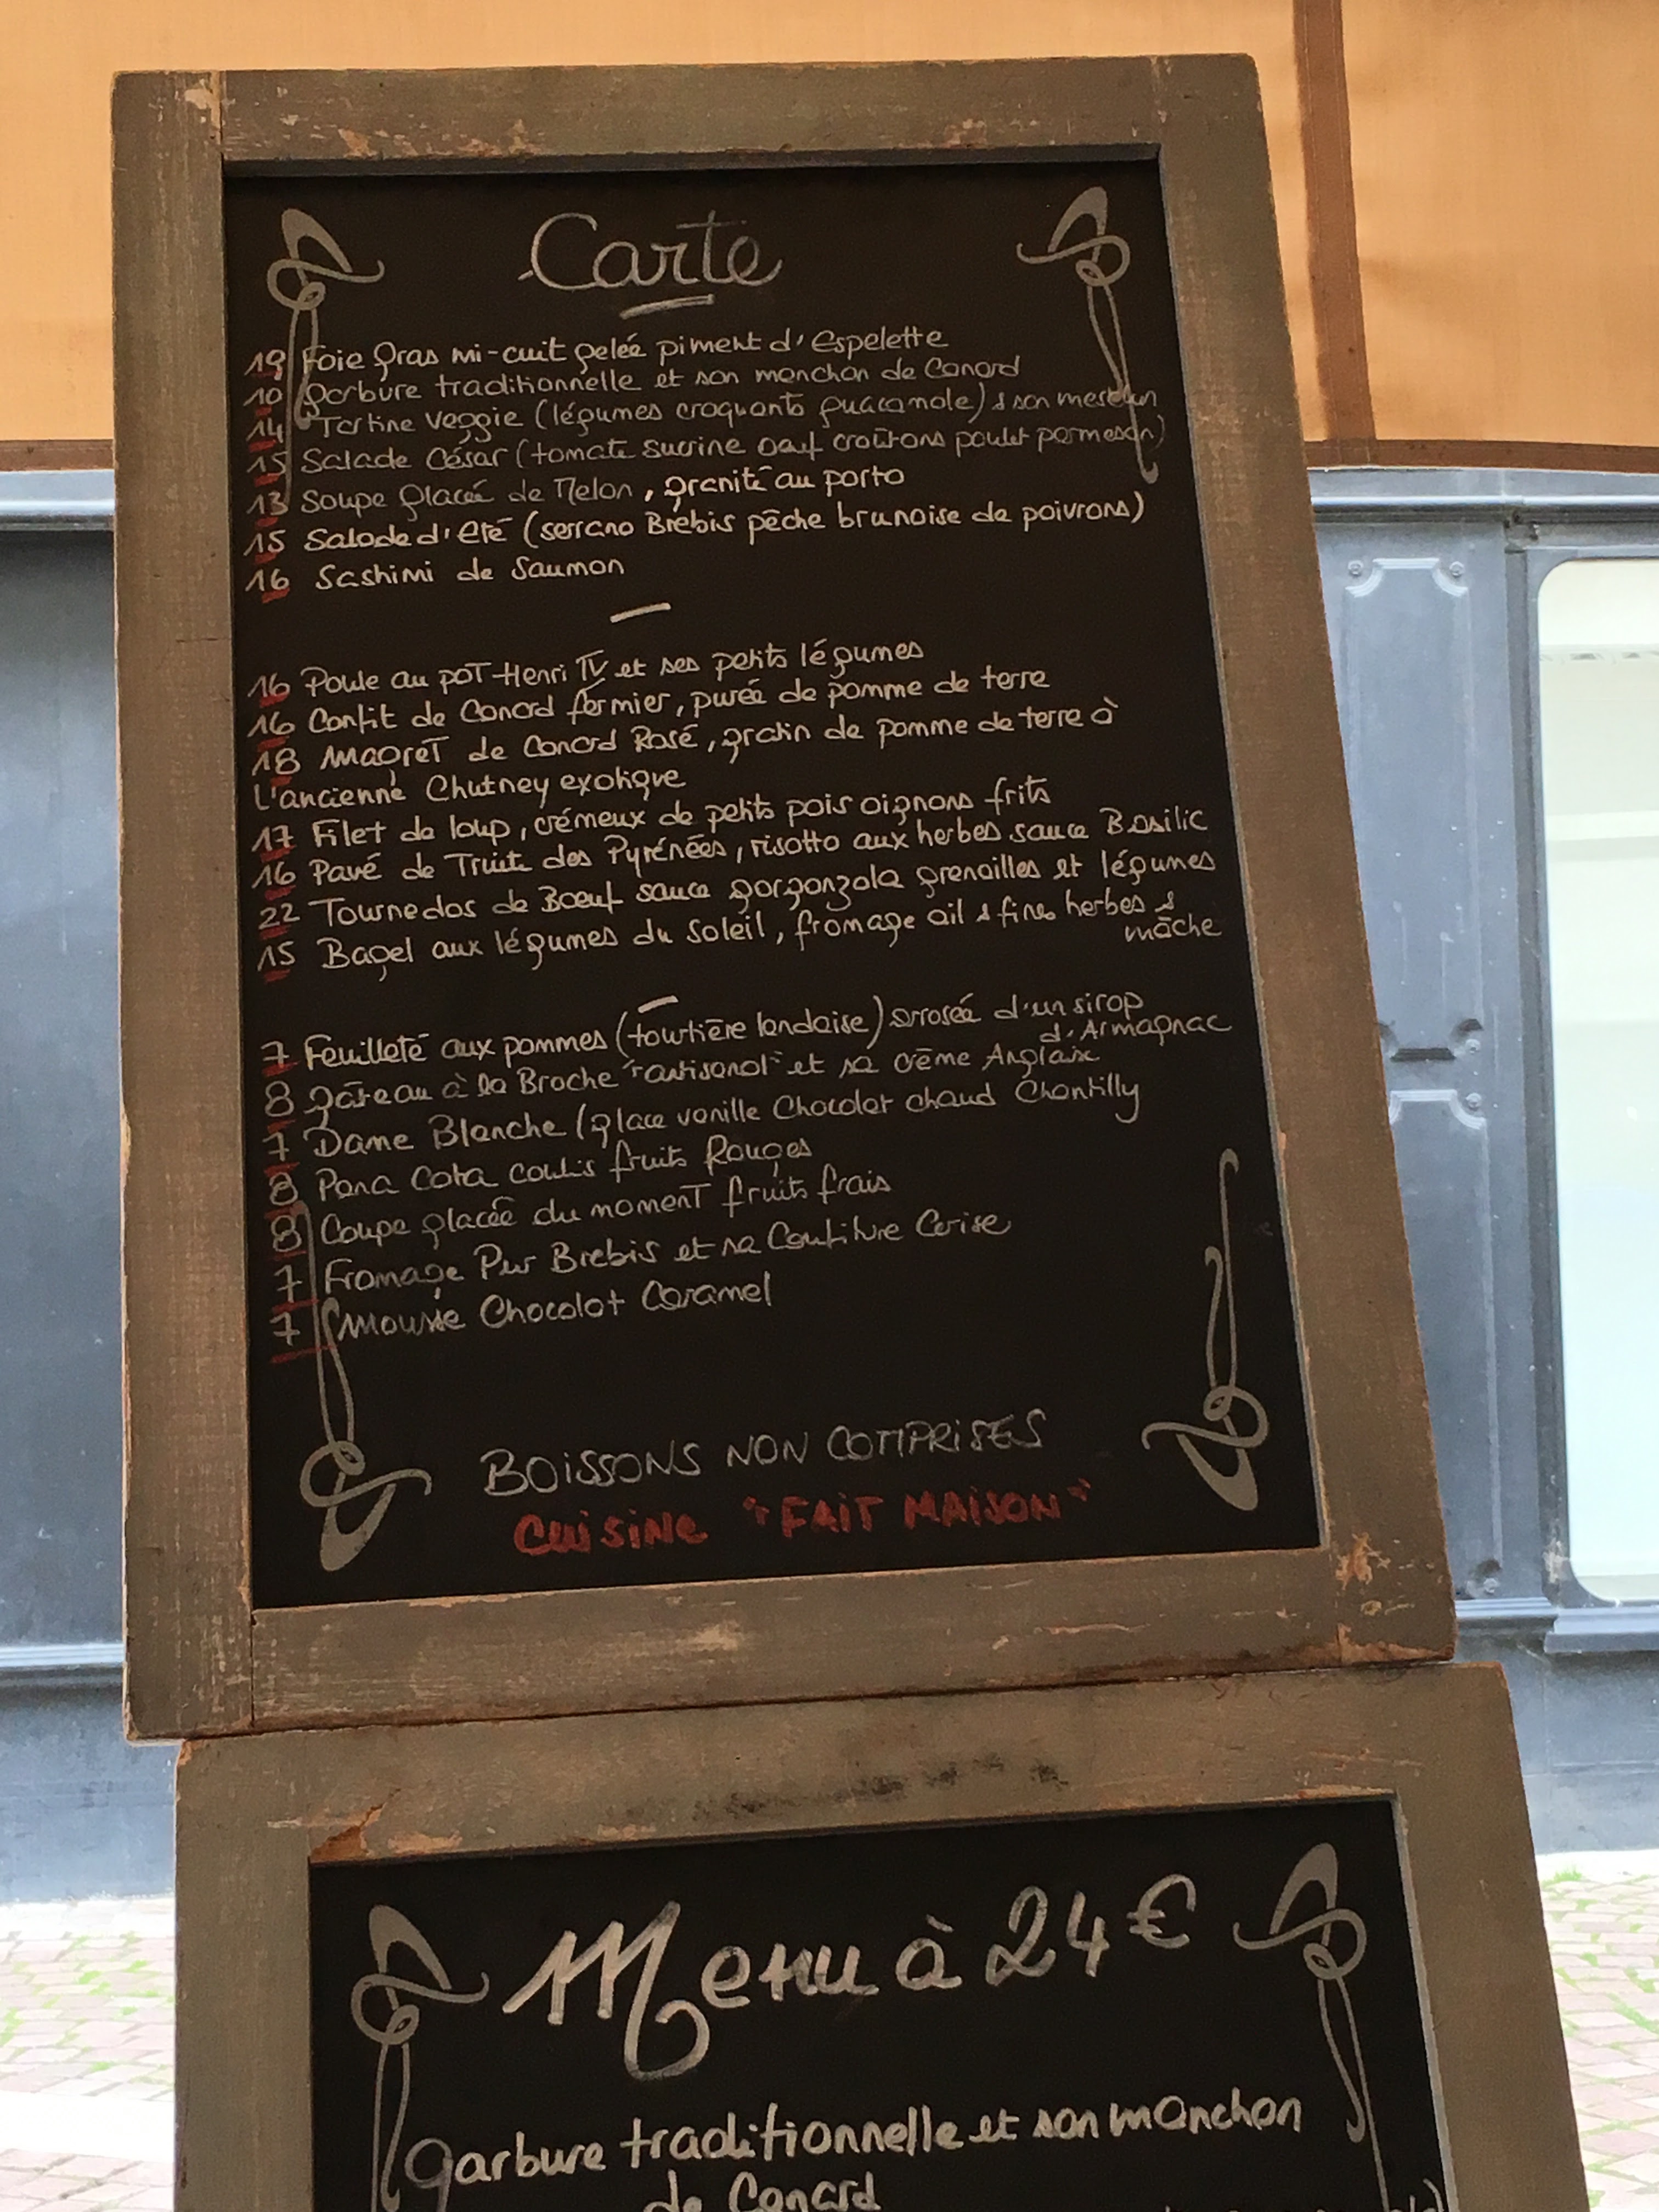 Carte
19 Foie gras mi-cuit gelée piment d'espelette
10 garbure traditionnelle et son manchon de Canard
14 Tartine Veggie (légumes croquants guacamole) & son mesclun
15 Salade César (tomate sucrine oeuf croûtons poulet parmesan)
13 Soupe glacée de Melon, granité au porto
15 Salade d'été (serrano Brebis pêche brunoise de poivrons)
16 Sashimi de Saumon
16 Poule au pot Henri IV et ses petits légumes
16 Confit de Canard fermier, purée de pomme de terre
18 Magret de Canard Rosé, gratin de pomme de terre à
l'ancienne Chutney exotique
17 Filet de loup, crémeux de petits pois oignons frits
16 Pavé de Truite des Pyrénées, risotto aux herbes sauce Basilic
22 Tournedos de Boeuf sauce gorgonzola grenailles et légumes
15 Bagel aux légumes du Soleil, fromage ail & fines herbes &
mâche
7 Feuilleté aux pommes (tourtière landaise) arrosée d'un sirop
d'Armagnac
8 gâteau à la Broche "artisanal" et sa crème Anglaise
7 Dame Blanche (glace vanille Chocolat chaud Chantilly
8 Pana Cota coulis fruits Rouges
8 Coupe glacée du moment fruits frais
7 Fromage Pur Brebis et sa Confiture Cerise
7 Mousse Chocolat Caramel
BOISSONS NON COMPRISES
CUISINE "FAIT MAISON"
Menu à 24€
Garbure traditionnelle et son manchon
de Canard